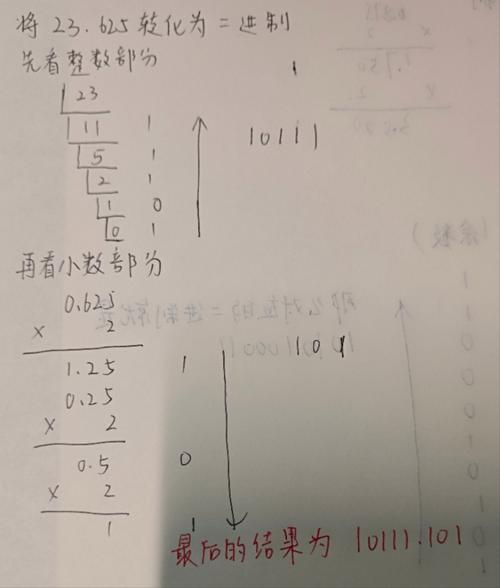 将 23.625 转化为二进制
先看整数部分
23
11 1
5 1
2 1
1 0
0 1
10111
再看小数部分
0.625
× 2
1.25 1
0.25
× 2
0.5 0
× 2
1 1
101
最后的结果为 10111.101